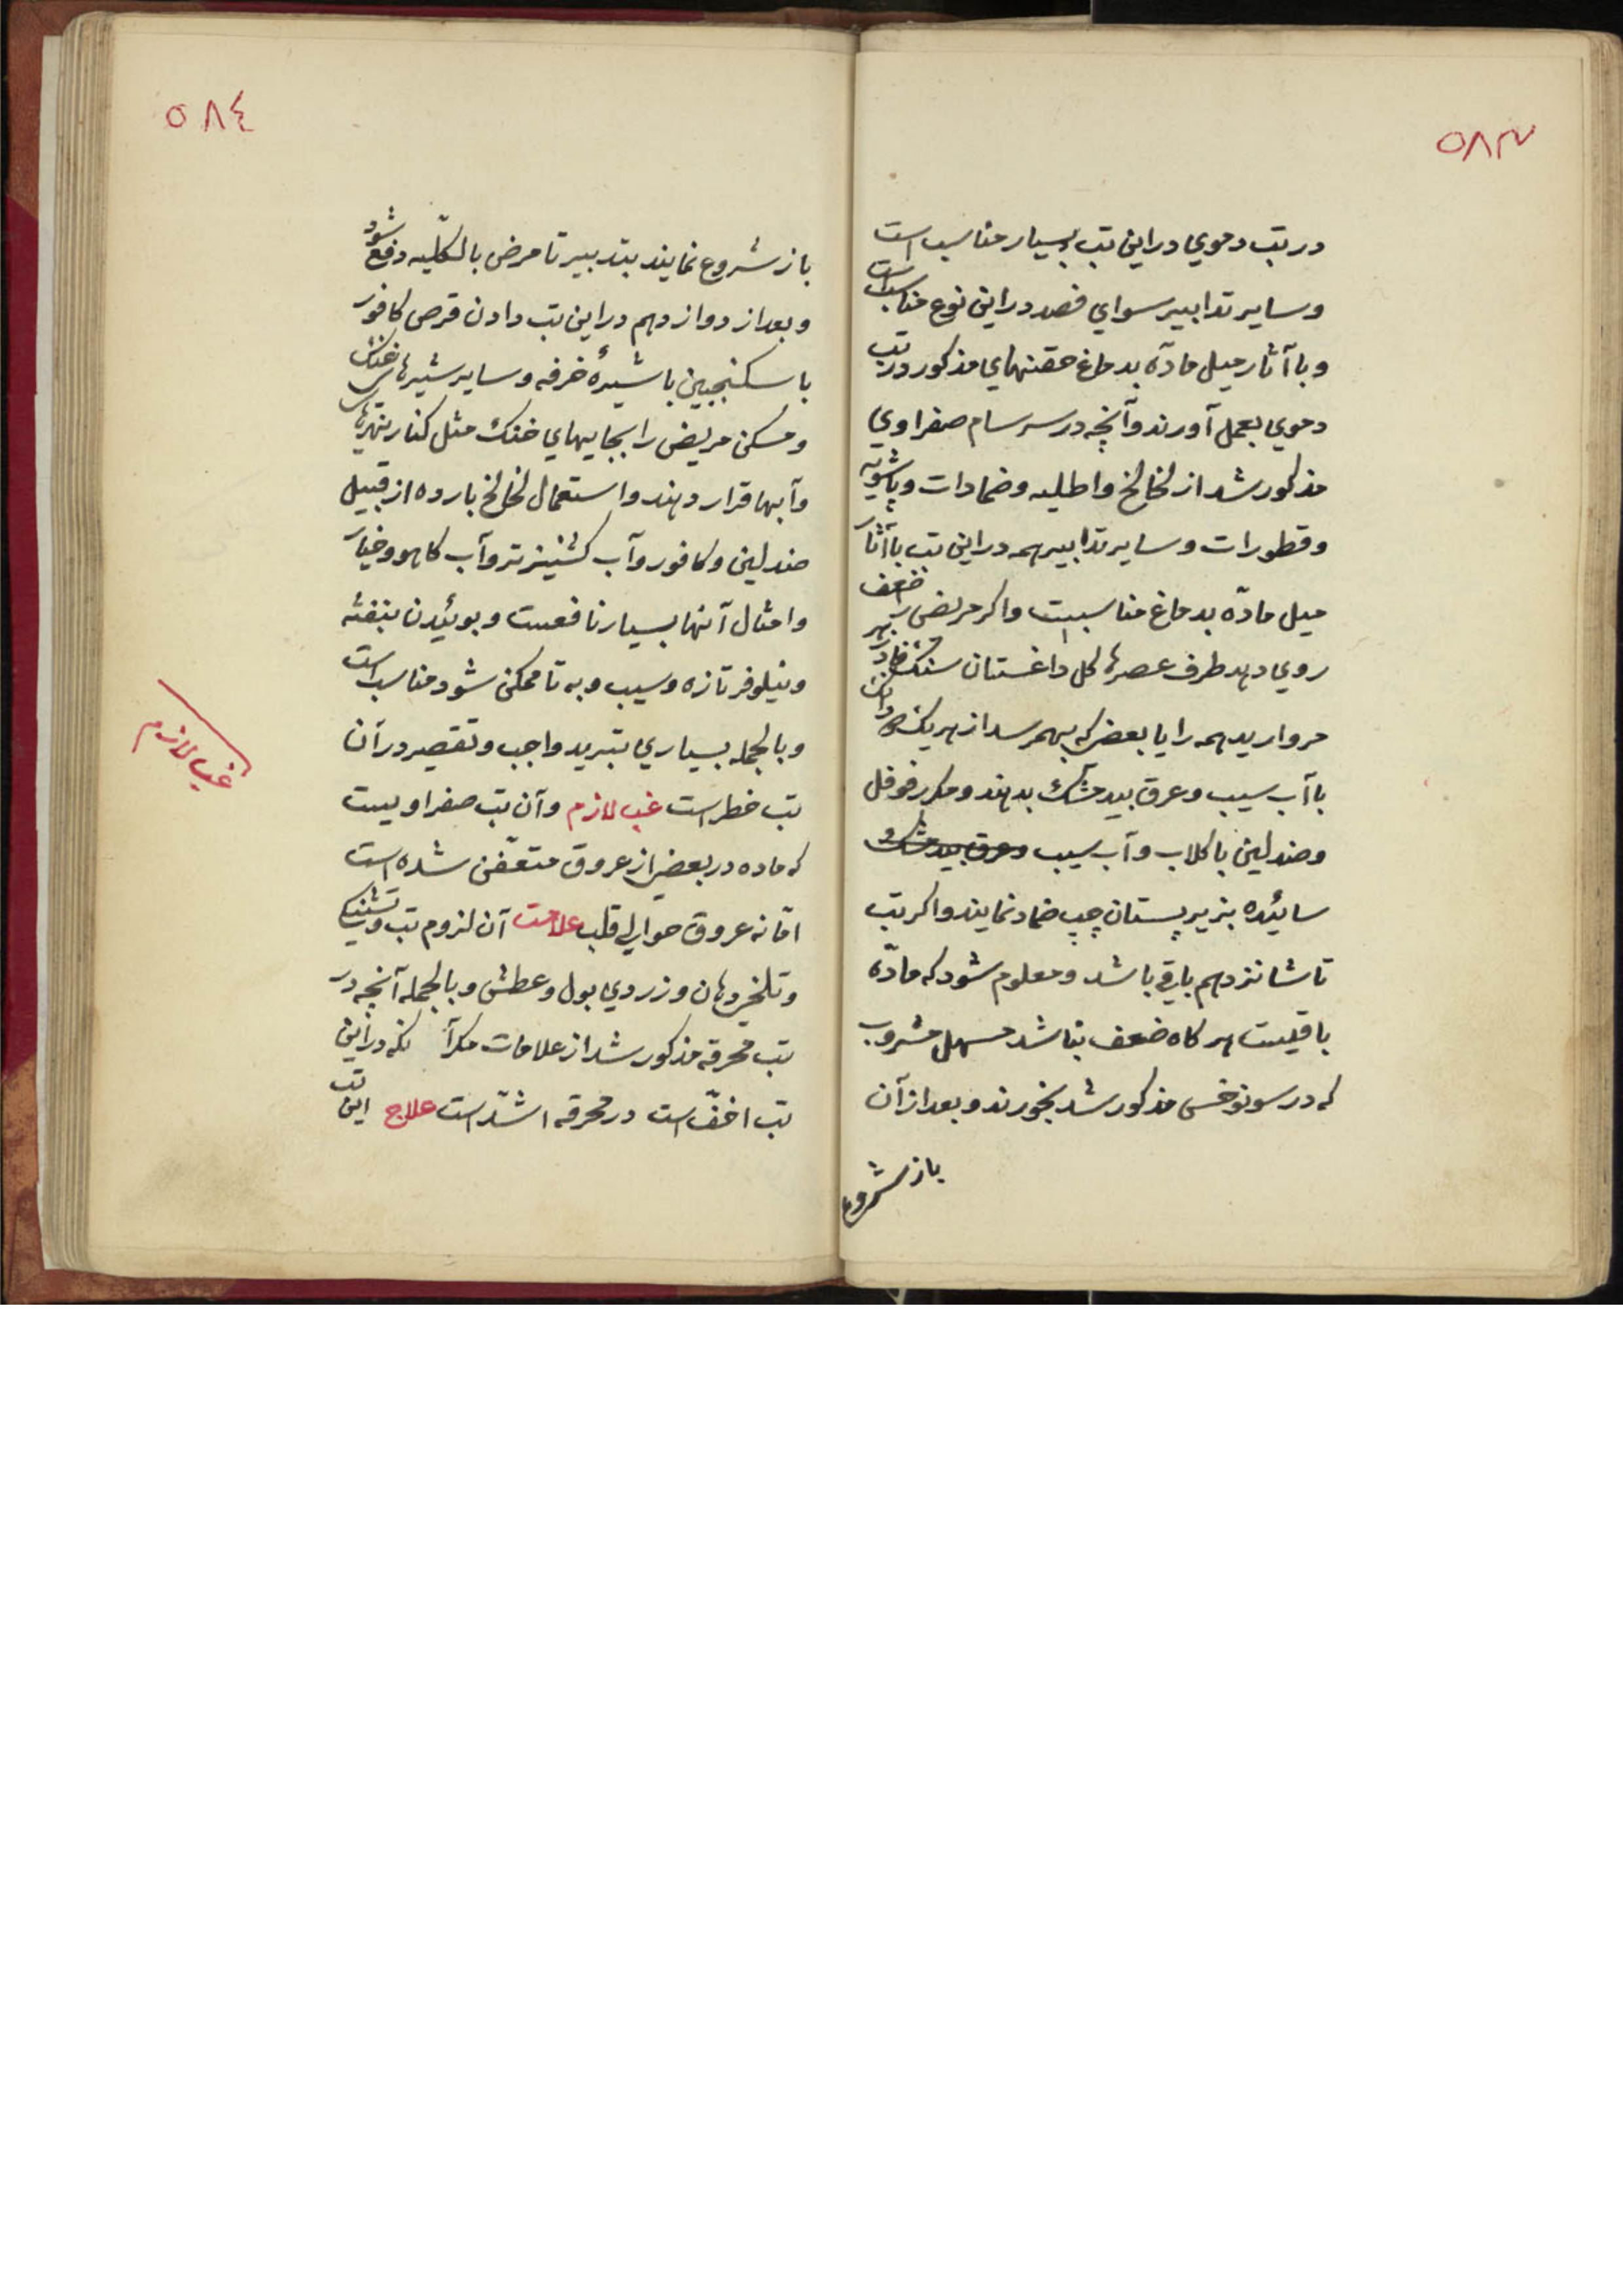 ٥٨٣
در تب دموي در این تب بسیار مناسب است
و سایر تدابیر سواي فصد در این نوع مناسب است
و با آثار میل مادّه بدماغ حقنهاي مذکور در تب
دموي بعمل آورند و آنچه در سرسام صفراوي
مذکور شد از لخالخ و اطلیه و ضمادات و پاشویه
و قطورات و سایر تدابیر همه در این تب با آثار
میل مادّه بدماغ مناسبست و اکر مریض را ضعف
روي دهد طرف عصرها کل داغستان سنك پادزهر
مروارید همه را یا بعضی که بهمرسد از هر یك
با آب سیب و عرق بیدمشك بدهند و مکرر فوفل
و صندلین با کلاب و آب سیب و عرق بیدمشك
سائیده بزیر پستان چپ ضماد نمایند و اکر تب
تا شانزدهم باقی باشد و معلوم شود که مادّه
باقیست هرکاه ضعف نباشد مسهل مشروب
که در سونوخس مذکور شد بخورند و بعد از آن
باز شروع
٥٨٤
باز شروع نمایند بتدبیر تا مرض بالکلّیه دفع شود
و بعد از دوازدهم در این تب دادن قرص کافور
با سکنجبین با شیرۀ خرفه و سایر شیرهاي خنك
و مسکن مریض را بجایهاي خنك مثل کنار نهرها
و آبها قرار دهند و استعمال لخالخ بارده از قبیل
صندلین و کافور و آب کشنیز تر و آب کاهو و خیار
و امثال آنها بسیار نافعست و بوئیدن بنفشه
و نیلوفر تازه و سیب و به تا ممکن شود مناسب است
و بالجمله بسیاري تبرید واجب و تقصیر در آن
تب خطر است غب لازم و آن تب صفراویست
که ماده در بعضی از عروق متعفّن شده است
امّا نه عروق حوالی قلب علامت آن لزوم تب و تشنکی
و تلخی دهان و زردي بول و عطش و بالجمله آنچه در
تب محرقه مذکور شد از علامات در این
تب اخفّ است در محرقه اشدّ است علاج این تب
غب لازم